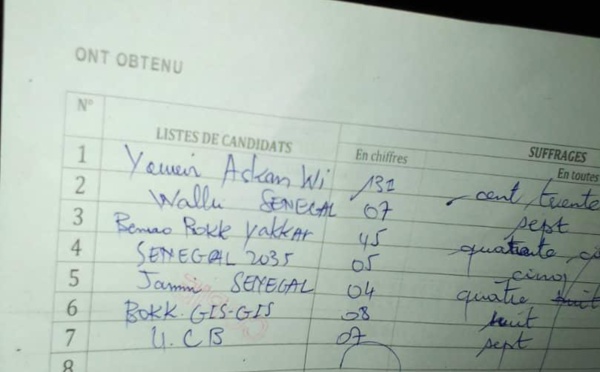 ONT OBTENU
N° LISTES DE CANDIDATS En chiffres SUFFRAGES En toutes
1 Yewwi Askan Wi 132 cent, trente
2 Wallu SENEGAL 07 sept
3 Benno Bokk Yakkar 45 quarante
4 SENEGAL 2035 05 cinq
5 Jammi SENEGAL 04 quatre
6 BOKK GIS-GIS 08 huit
7 U.CB 07 sept
8